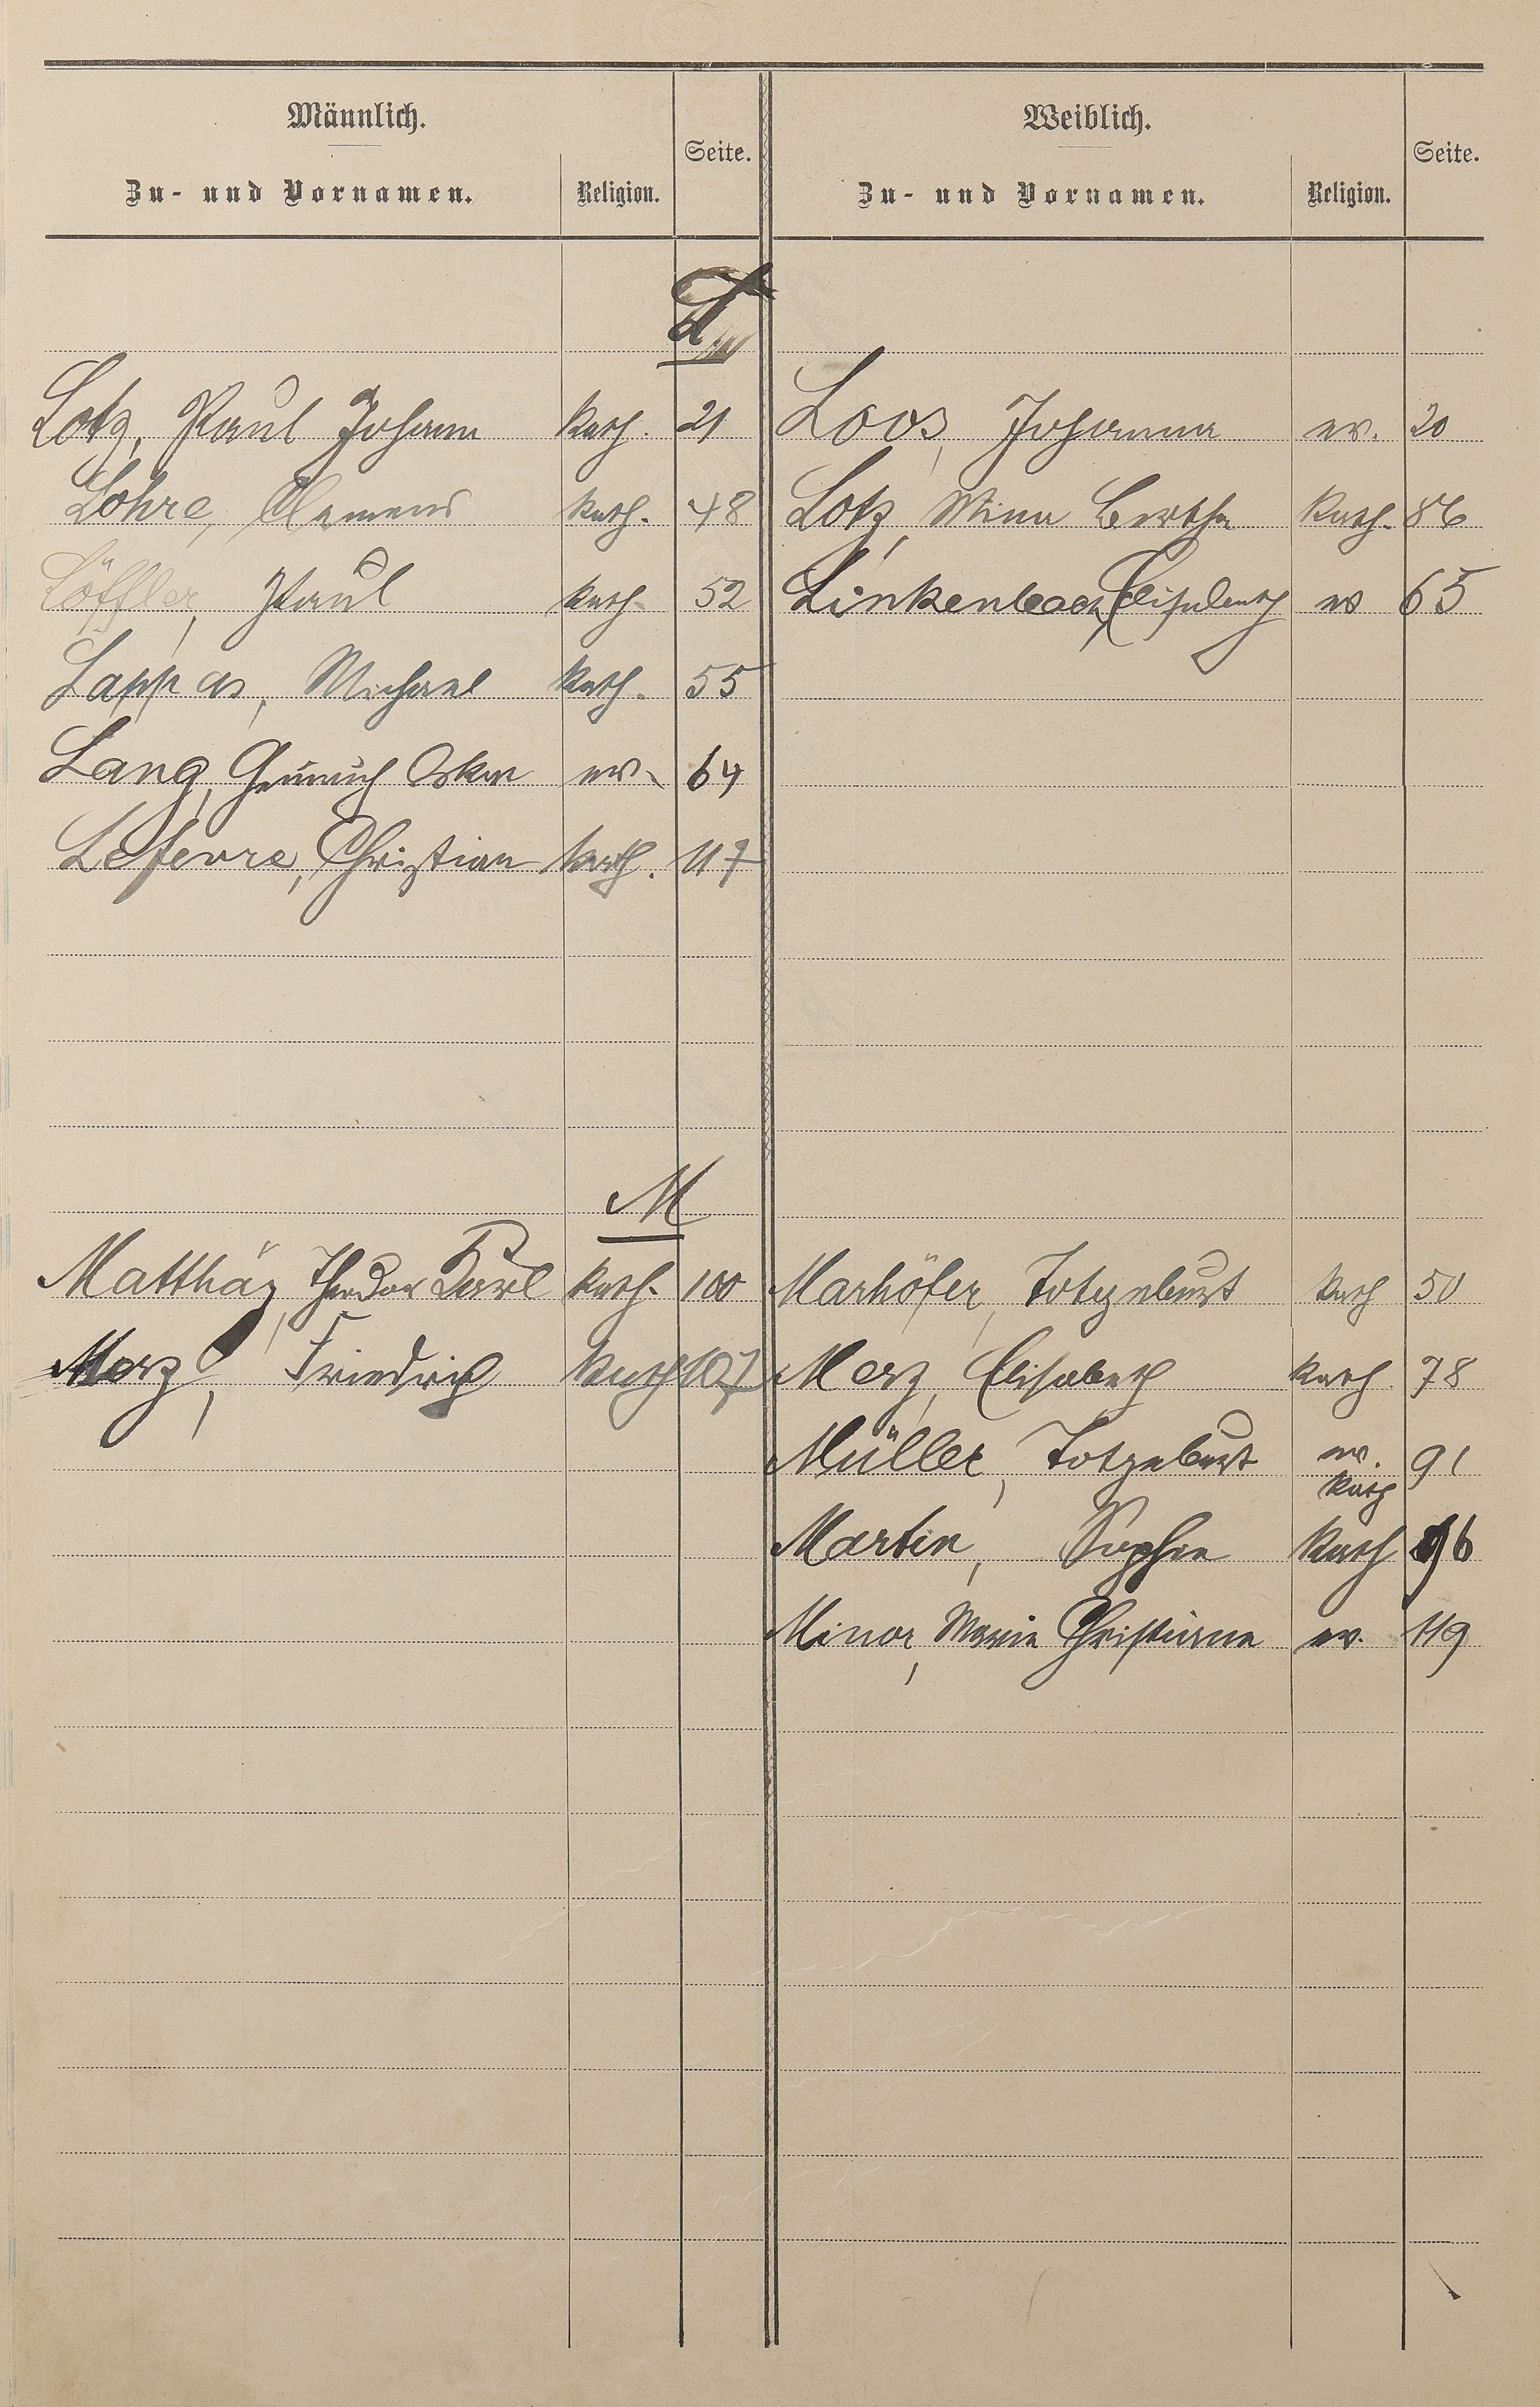 Männlich.
Zu- und Vornamen. Religion. Seite.
Weiblich.
Zu- und Vornamen. Religion. Seite.
L
Lotz, Paul Johann kath. 21
Lohre, Clemens kath. 48
Löffler, Paul kath. 52
Lappas, Michael kath. 55
Lang, Heinrich Oskar ev. 64
Lefevre, Christian kath. 117
Loos, Johanna ev. 20
Lotz, Mina Bertha kath. 86
Linkenbach, Elisabeth ev 65
M
Matthäy, Theodor Karl kath. 100
Merz, Friedrich kath 107
Marhöfer, Totgeburt kath 50
Merz, Elisabeth kath. 78
Müller, Totgeburt ev. kath 91
Martin, Sophie kath 96
Minor, Marie Christiane ev. 119